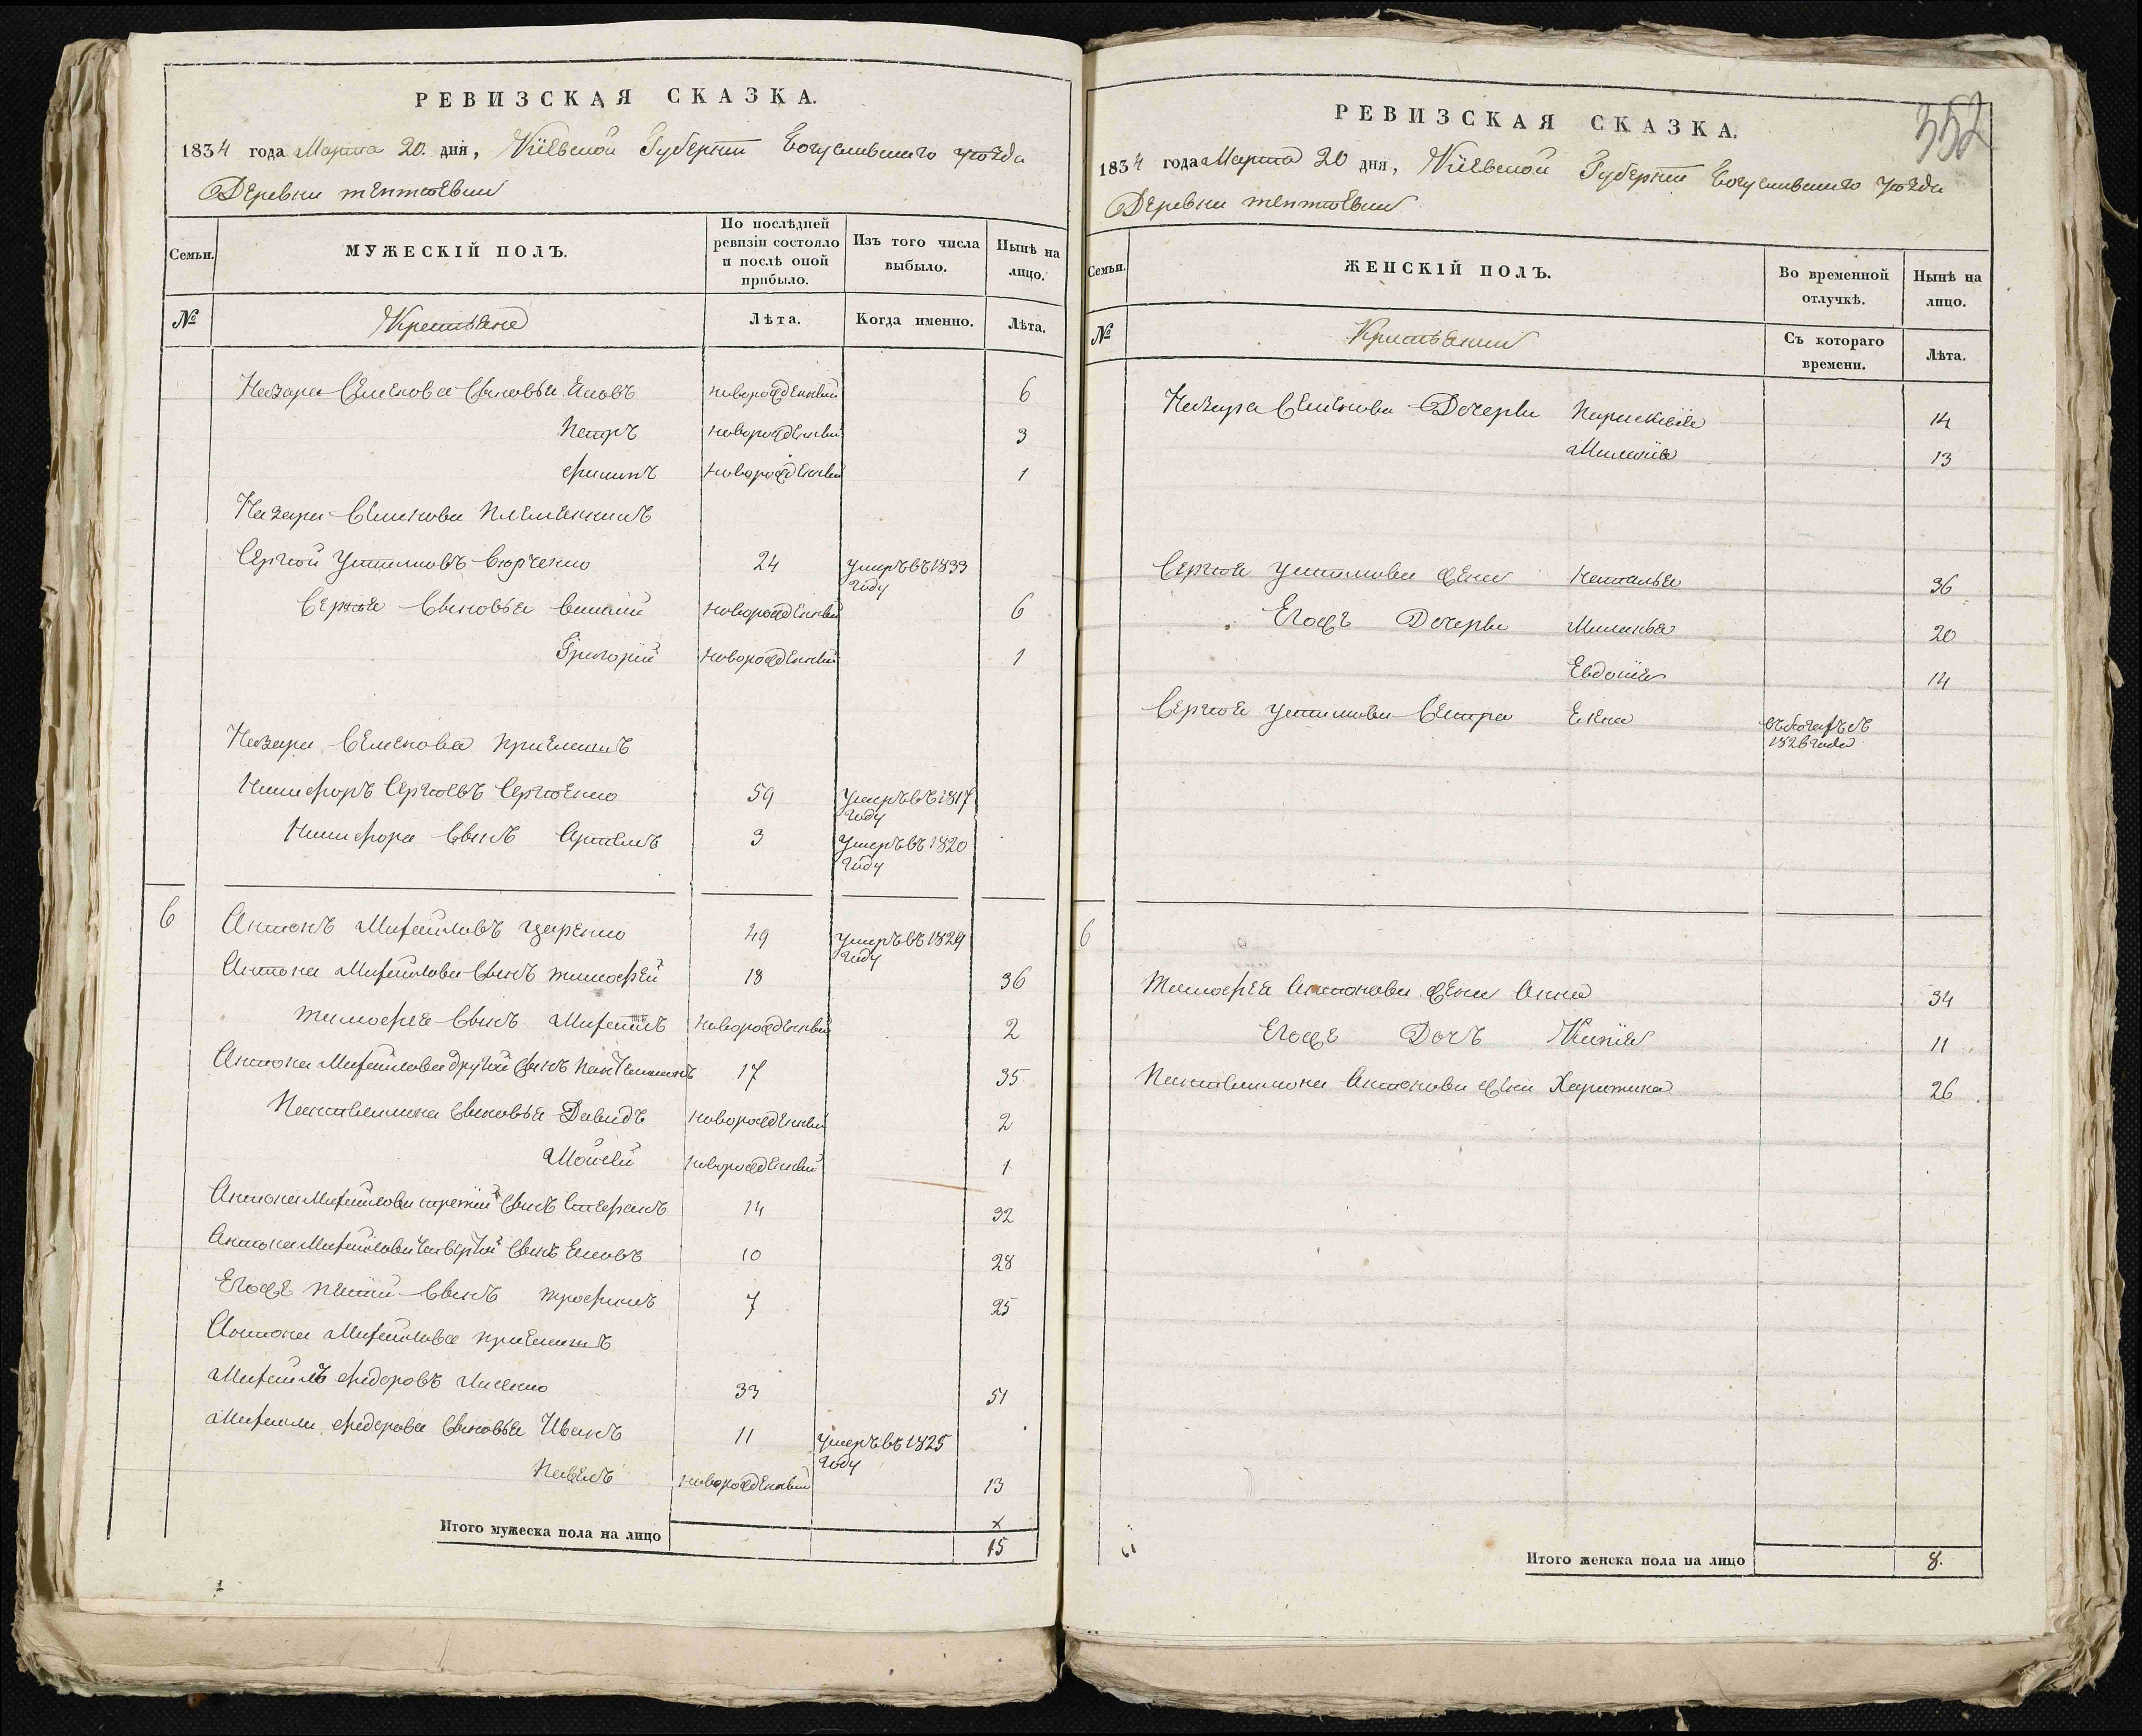 РЕВИЗСКАЯ СКАЗКА.
1834 года Марта 20. дня, Кіевской Губерніи Богуславского уѣзда
Деревни Тептѣевки
Семьи.
МУЖЕСКІЙ ПОЛЪ.
По послѣдней ревизіи состояло и послѣ оной прибыло.
Изъ того числа выбыло.
Нынѣ на лицо.
№
Крестьяне
Лѣта.
Когда именно.
Лѣта.
Назара Семенова Сыновья Яковъ новорожденный 6
Петръ новорожденный 3
Филипъ новорожденный 1
Назара Семенова племенникъ
Сергѣй Устимовъ 24 умеръ въ 1833 году
Сергѣя Сыновья новорожденный 6
Григорій новорожденный 1
Назара Семенова приемышъ
Никифоръ Сергѣевъ Сергѣенко 59 умеръ въ 1817 году
Никифора Сынъ Артемъ 3 умеръ въ 1820 году
6 Антонъ Михайловъ Царенко 49 умеръ въ 1829 году
Антона Михайлова Сынъ Тимофей 18 36
Тимофея Сынъ Михайлъ новорожденный 2
Антона Михайлова другой Сынъ Пантелимонъ 17 35
Пантелимона Сыновья Давидъ новорожденный 2
Мойсей новорожденный 1
Антона Михайлова третій Сынъ Стефанъ 14 32
Антона Михайлова четвертой Сынъ Яковъ 10 28
Егоже пятый Сынъ Трофимъ 7 25
Антона Михайлова приемышъ
Михайлъ Федоровъ 33 51
Михайла Федорова Сыновья Иванъ 11 умеръ въ 1825 году
Павелъ новорожденный 13
Итого мужеска пола на лицо 15
РЕВИЗСКАЯ СКАЗКА.
352
1834 года Марта 20 дня, Кіевской Губерніи Богуславского уѣзда
Деревни Тептѣевки
Семьи.
ЖЕНСКІЙ ПОЛЪ.
Во временной отлучкѣ.
Нынѣ на лицо.
№
Крестьянки
Съ котораго времени.
Лѣта.
Назара Семенова Дочери Параскевія 14
Меланія 13
Сергѣя Устимова жена Наталья 36
Егожъ Дочери Меланья 20
Евдокія 14
Сергѣя Устимова Сестра Елена въ бегахъ съ 1826 года
6
Тимофея Антонова жена Анна 34
Егоже Дочъ 11
Пантелимона Антонова жена Харитина 26
Итого женска пола на лицо 8.